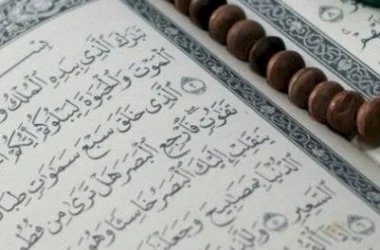 تَبَٰرَكَ ٱلَّذِى بِيَدِهِ ٱلْمُلْكُ
ٱلْمَوْتَ وَٱلْحَيَوٰةَ لِيَبْلُوَكُمْ أَيُّكُمْ
ٱلَّذِى خَلَقَ سَبْعَ سَمَٰوَٰتٍ طِبَا
تَفَٰوُتٍ فَٱرْجِعِ ٱلْبَصَرَ هَلْ تَرَىٰ مِن فُط
يَنقَلِبْ إِلَيْكَ ٱلْبَصَرُ خَاسِئًا وَهُوَ
ٱلدُّنْيَا بِمَصَٰبِيحَ وَجَعَلْ
ٱلسَّعِيرِ